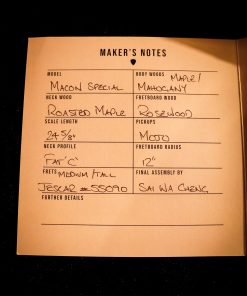 MAKER'S NOTES
MODEL
MACON SPECIAL
BODY WOODS
MAPLE/
MAHOGANY
NECK WOOD
ROASTED MAPLE
FRETBOARD WOOD
ROSEWOOD
SCALE LENGTH
24 5/8"
PICKUPS
MOJO
NECK PROFILE
FAT 'C'
FRETBOARD RADIUS
12"
FRETS MEDIUM/TALL
JESCAR #55090
FINAL ASSEMBLY BY
SAI WA CHENG
FURTHER DETAILS